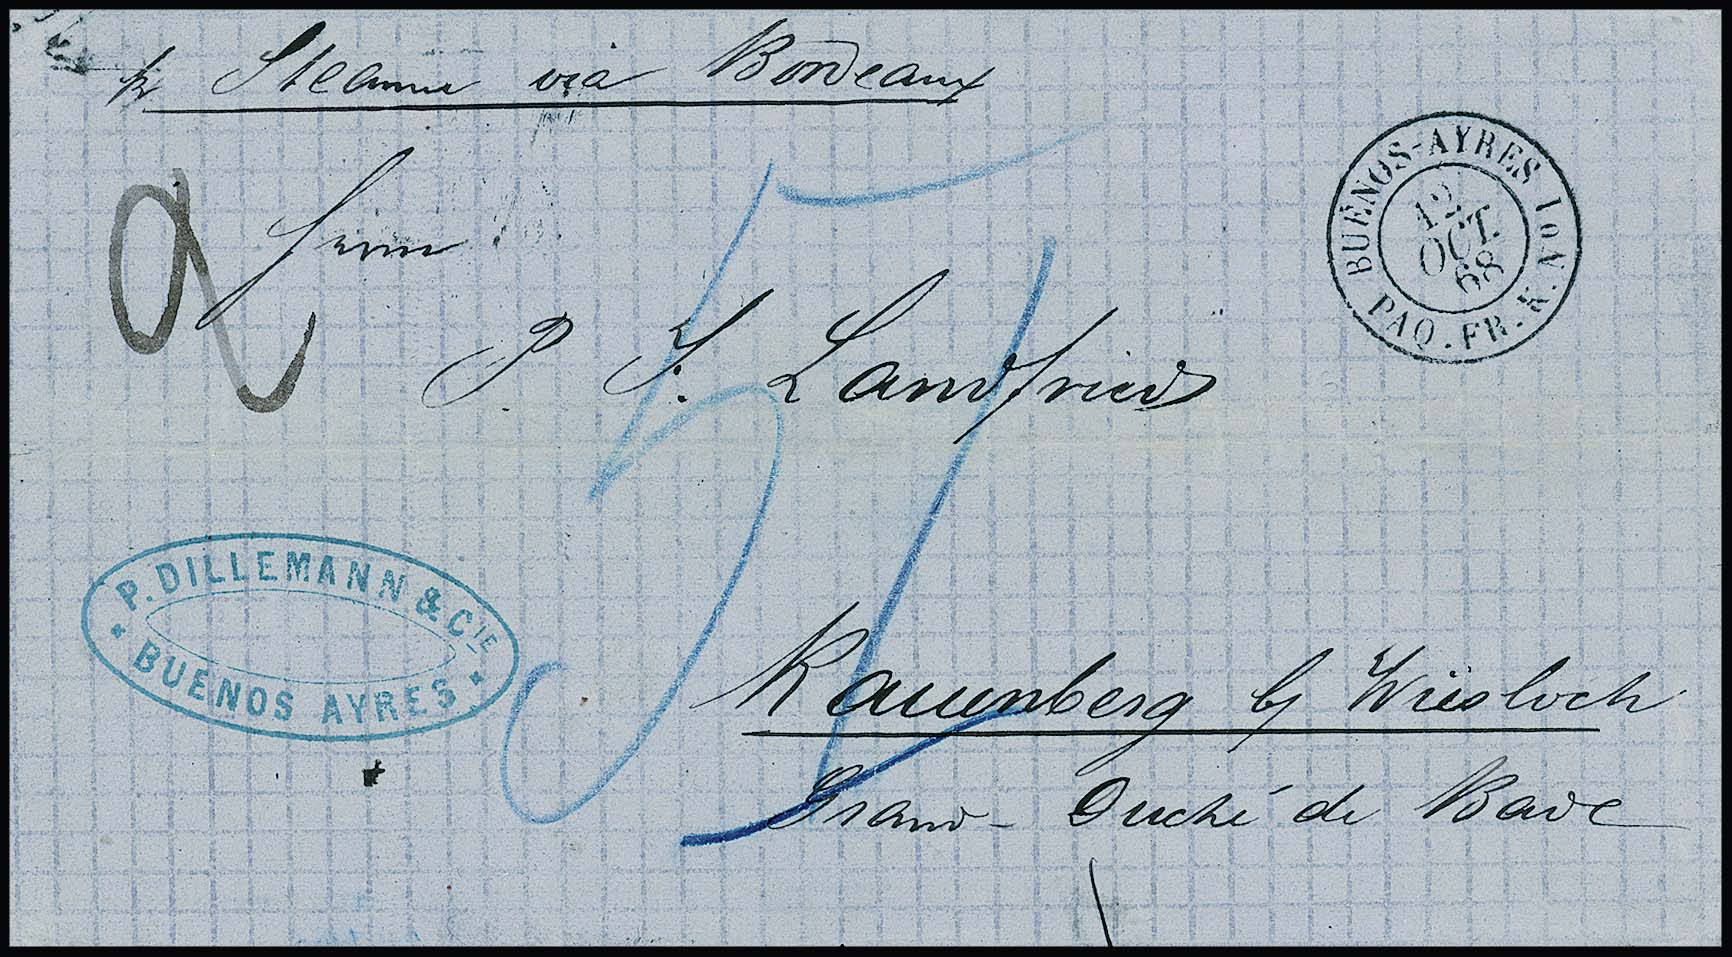 pr Steamer via Bordeaux
BUENOS-AYRES 1o N.
12
OCT.
68
PAQ. FR. K.
2
Herrn
P. J. Landfried
51
P. DILLEMANN & CIE
BUENOS AYRES
Rauenberg b/ Wiesloch
Grand-Duché de Bade